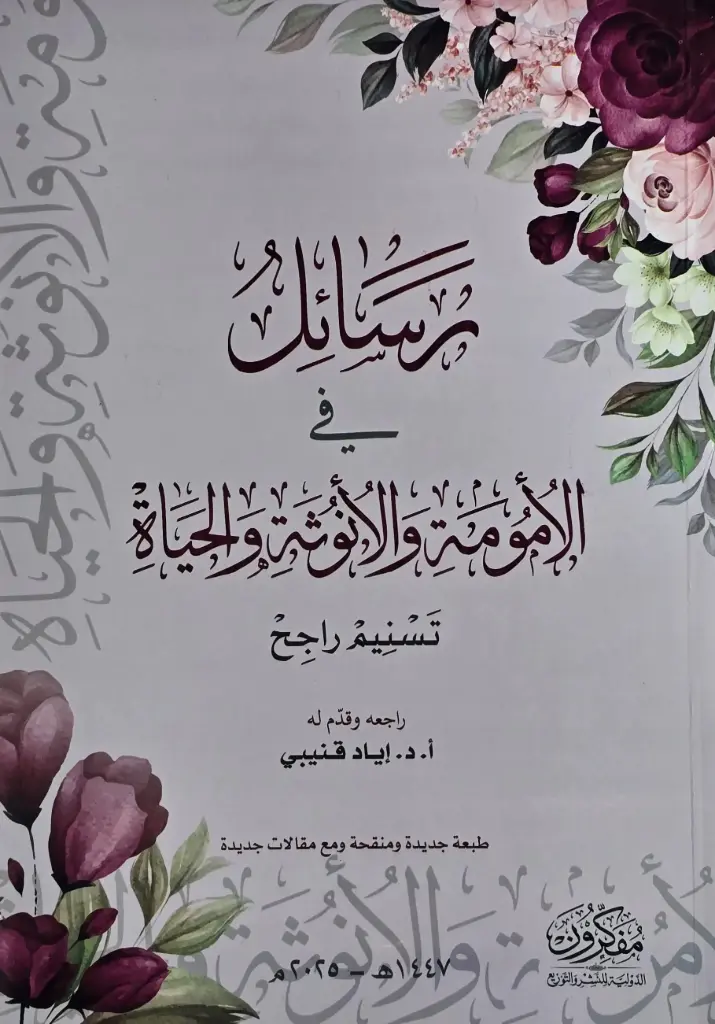 رَسَائِلُ
في
الأُمُومَةِ وَالأُنُوثَةِ وَالحَيَاةِ
تَسْنِيمْ راجِحْ
راجعه وقدّم له
أ. د. إياد قنيبي
طبعة جديدة ومنقحة ومع مقالات جديدة
مُفَكِّرُونَ
الدولية للنشر والتوزيع
١٤٤٧هـ - ٢٠٢٥م